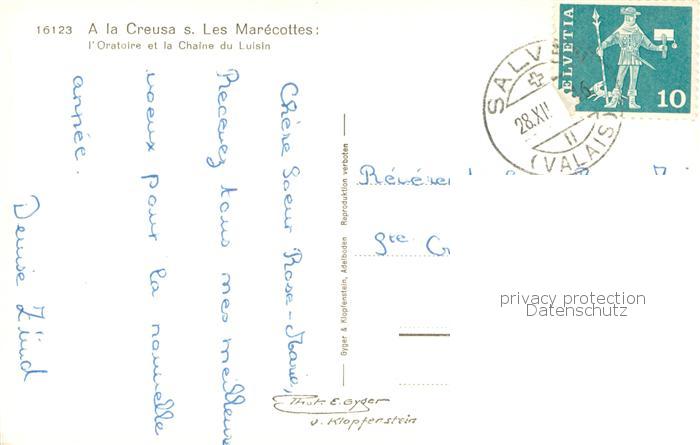 16123 A la Creusa s. Les Marécottes:
l'Oratoire et la Chaîne du Luisin
Chère Soeur Rose-Marie,
Recevez tous mes meilleurs
voeux pour la nouvelle
année.
Denise Zünd
Gyger & Klopfenstein, Adelboden Reproduktion verboten
Phot. E. Gyger
u. Klopfenstein
HELVETIA
10
SALV
28.XII
(VALAIS)
Révére
Ste
privacy protection
Datenschutz